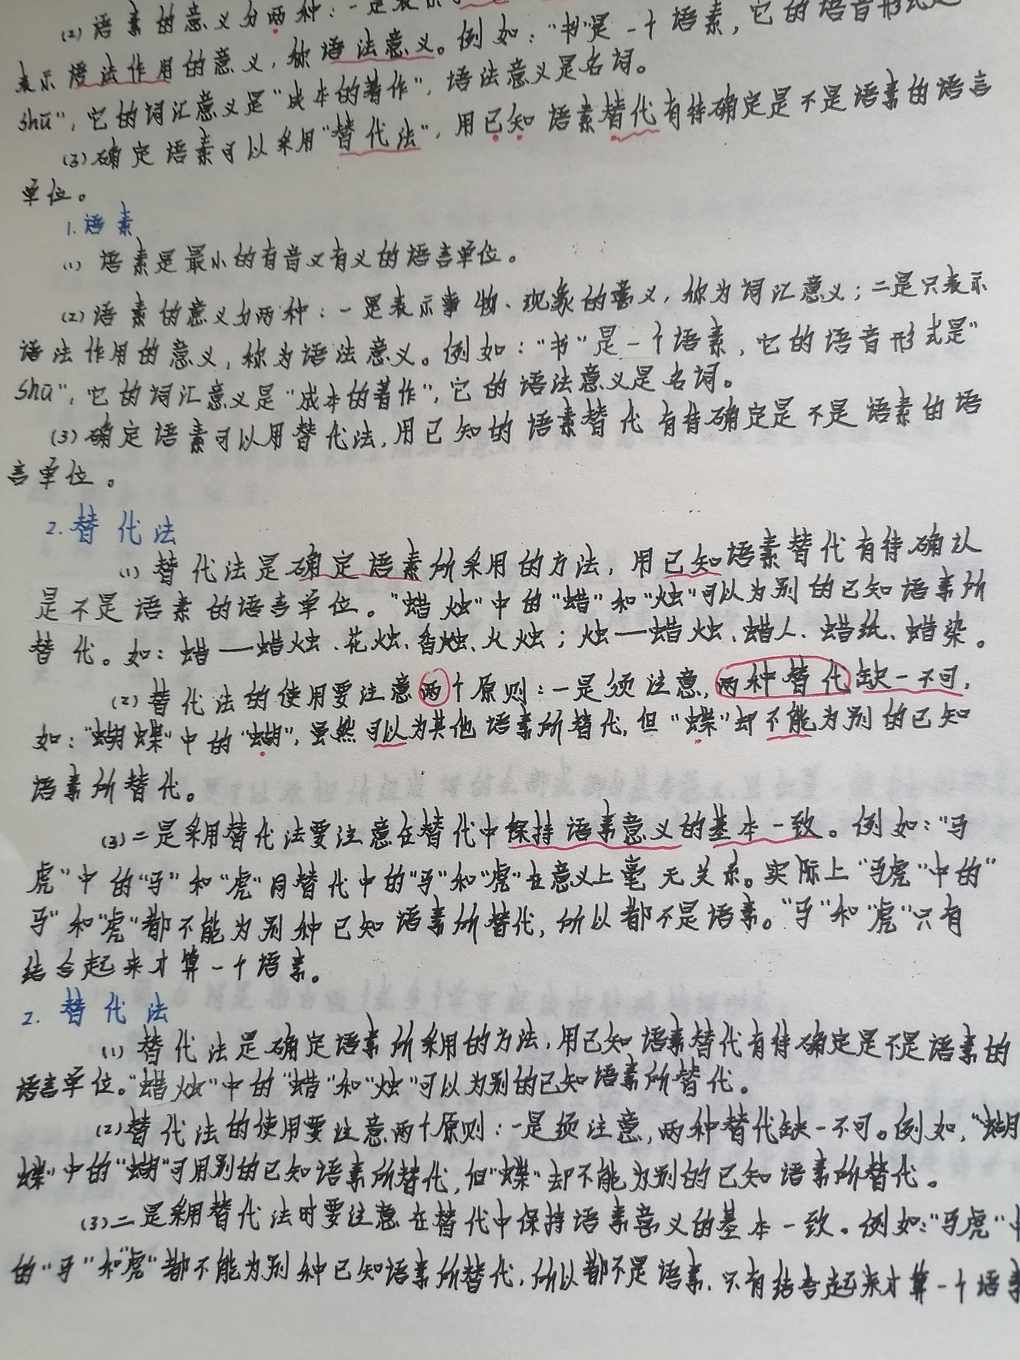 (2) 语素的意义分两种：一是表示
表示语法作用的意义，称语法意义。例如："书"是一个语素，它的语音形式是
shū"，它的词汇意义是"成本的著作"，语法意义是名词。
(3) 确定语素可以采用"替代法"，用已知语素替代有待确定是不是语素的语言
单位。
1. 语素
(1) 语素是最小的有音义有义的语言单位。
(2) 语素的意义分两种：一是表示事物、现象的意义，称为词汇意义；二是只表示
语法作用的意义，称为语法意义。例如："书"是一个语素，它的语音形式是"
shū"，它的词汇意义是"成本的著作"，它的语法意义是名词。
(3) 确定语素可以用替代法，用已知的语素替代有待确定是不是语素的语
言单位。
2. 替代法
(1) 替代法是确定语素所采用的方法，用已知语素替代有待确认
是不是语素的语言单位。"蜡烛"中的"蜡"和"烛"可以为别的已知语素所
替代。如：蜡——蜡烛、花烛、香烛、火烛；烛——蜡烛、蜡人、蜡纸、蜡染。
(2) 替代法的使用要注意两个原则：一是须注意，两种替代缺一不可，
如："蝴蝶"中的"蝴"，虽然可以为其他语素所替代，但"蝶"却不能为别的已知
语素所替代。
(3) 二是采用替代法要注意在替代中保持语素意义的基本一致。例如："马
虎"中的"马"和"虎"用替代中的"马"和"虎"在意义上毫无关系。实际上"马虎"中的"
马"和"虎"都不能为别种已知语素所替代，所以都不是语素。"马"和"虎"只有
结合起来才算一个语素。
2. 替代法
(1) 替代法是确定语素所采用的方法，用已知语素替代有待确定是不是语素的
语言单位。"蜡烛"中的"蜡"和"烛"可以为别的已知语素所替代。
(2) 替代法的使用要注意两个原则：一是须注意，两种替代缺一不可。例如，"蝴
蝶"中的"蝴"可用别的已知语素所替代，但"蝶"却不能为别的已知语素所替代。
(3) 二是采用替代法时要注意在替代中保持语素意义的基本一致。例如："马虎"中
的"马"和"虎"都不能为别种已知语素所替代，所以都不是语素，只有结合起来才算一个语素